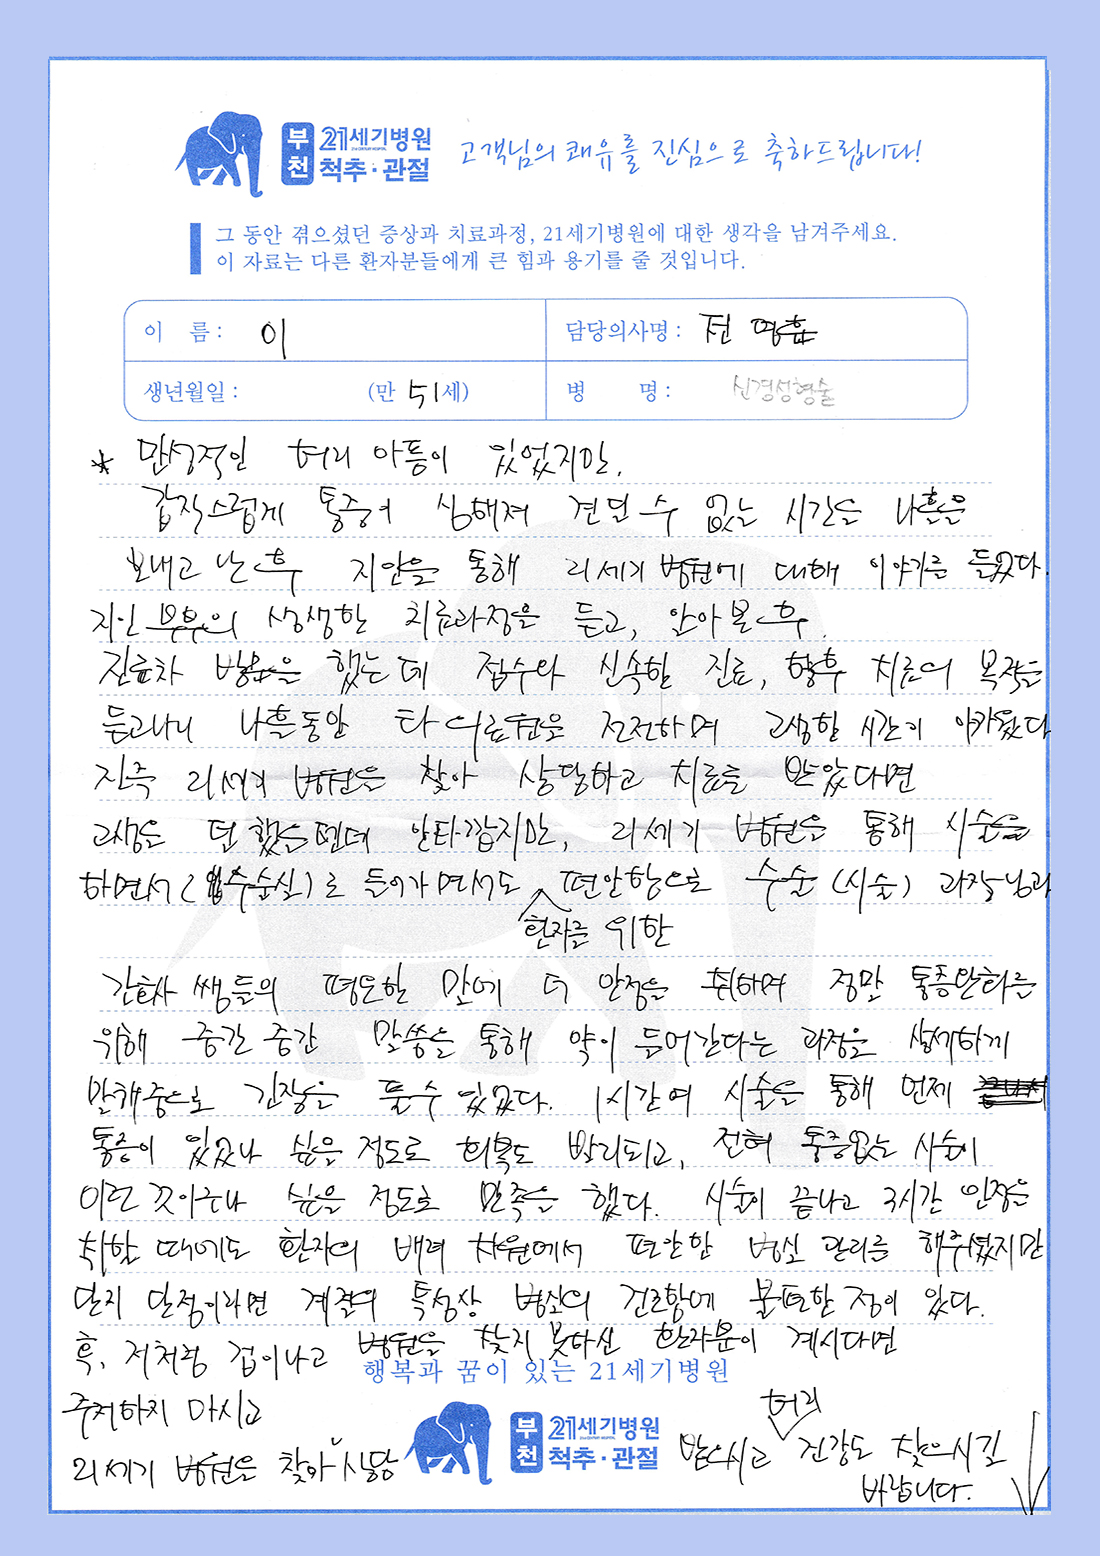 부천 21세기병원 척추·관절
고객님의 쾌유를 진심으로 축하드립니다!
그 동안 겪으셨던 증상과 치료과정, 21세기병원에 대한 생각을 남겨주세요.
이 자료는 다른 환자분들에게 큰 힘과 용기를 줄 것입니다.
이 름 : 이
담당의사명 : 전
생년월일 : (만 51세)
병 명 : 신경성형술
* 만성적인 허리 아픔이 있었지만,
갑작스럽게 통증이 심해져 견딜 수 없는 시간을 나흘을
보내고 난 후 지인을 통해 21세기 병원에 대해 이야기를 들었다.
지인 부부의 생생한 치료과정을 듣고, 알아본 후
진료차 방문을 했는데 접수와 신속한 진료, 향후 치료의 목적을
듣고나니 나흘동안 타 의료원을 전전하며 고생한 시간이 아까웠다
진즉 21세기 병원을 찾아 상담하고 치료를 받았다면
고생을 덜 했을텐데 안타깝지만, 21세기 병원을 통해 시술을
하면서 (수술실)로 들어가면서도 편안함으로 수술(시술) 과장님과
환자를 위한
간호사 쌤들의 평온한 말에 더 안정을 취하며 정말 통증완화를
위해 중간 중간 말씀을 통해 약이 들어간다는 과정을 상세하게
말해줌으로 긴장을 풀수 있었다. 1시간여 시술을 통해 언제
통증이 있었나 싶은 정도로 회복도 빨리되고, 전혀 통증없는 시술이
이런 것이구나 싶을 정도로 만족을 했다. 시술이 끝나고 3시간 안정을
취할 때에도 환자의 배려 차원에서 편안한 병실 관리를 해주셨지만
단지 단점이라면 계절의 특성상 병실의 건조함에 불편한 점이 있다.
혹, 저처럼 겁이나고 병원을 찾지 못하신 환자분이 계시다면
행복과 꿈이 있는 21세기병원
주저하지 마시고
허리
21세기 병원을 찾아 상담
부천 21세기병원 척추·관절
받으시고 건강도 찾으시길
바랍니다.